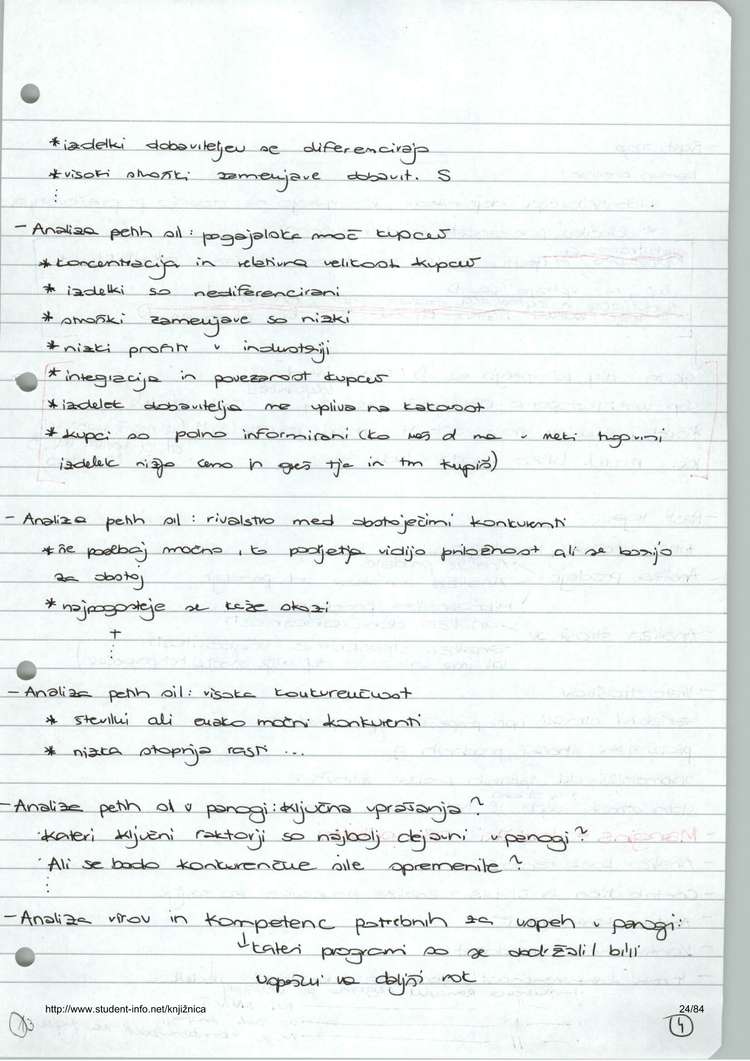 * izdelki dobaviteljev se diferencirajo
* visoki stroški zamenjave dobavit. S
⋮
- Analiza petih sil: pogajalska moč kupcev
* koncentracija in relativna velikost kupcev
* izdelki so nediferencirani
* stroški zamenjave so nizki
* nizki profiti v industriji
* integracija in povezanost kupcev
* izdelek dobavitelja ne vpliva na kakovost
* kupci so polno informirani (ko veš d ma v neki trgovini
izdelek nižjo ceno in greš tja in tm kupiš)
- Analiza petih sil: rivalstvo med obstoječimi konkurenti
* še posebaj močno, ko podjetja vidijo priložnost ali se borijo
za obstoj
* najpogosteje se kaže skozi
+
⋮
- Analiza petih sil: visoka konkurenčnost
* številni ali enako močni konkurenti
* nizka stopnja rasti ...
- Analiza petih sil v panogi: ključna vprašanja?
· Kateri ključni faktorji so najbolj dejavni v panogi?
· Ali se bodo konkurenčne sile spremenile?
⋮
- Analiza virov in kompetenc potrebnih za uspeh v panogi:
↓ kateri programi so se obdržali / bili
uspešni na daljši rok
http://www.student-info.net/knjižnica
24/84
4